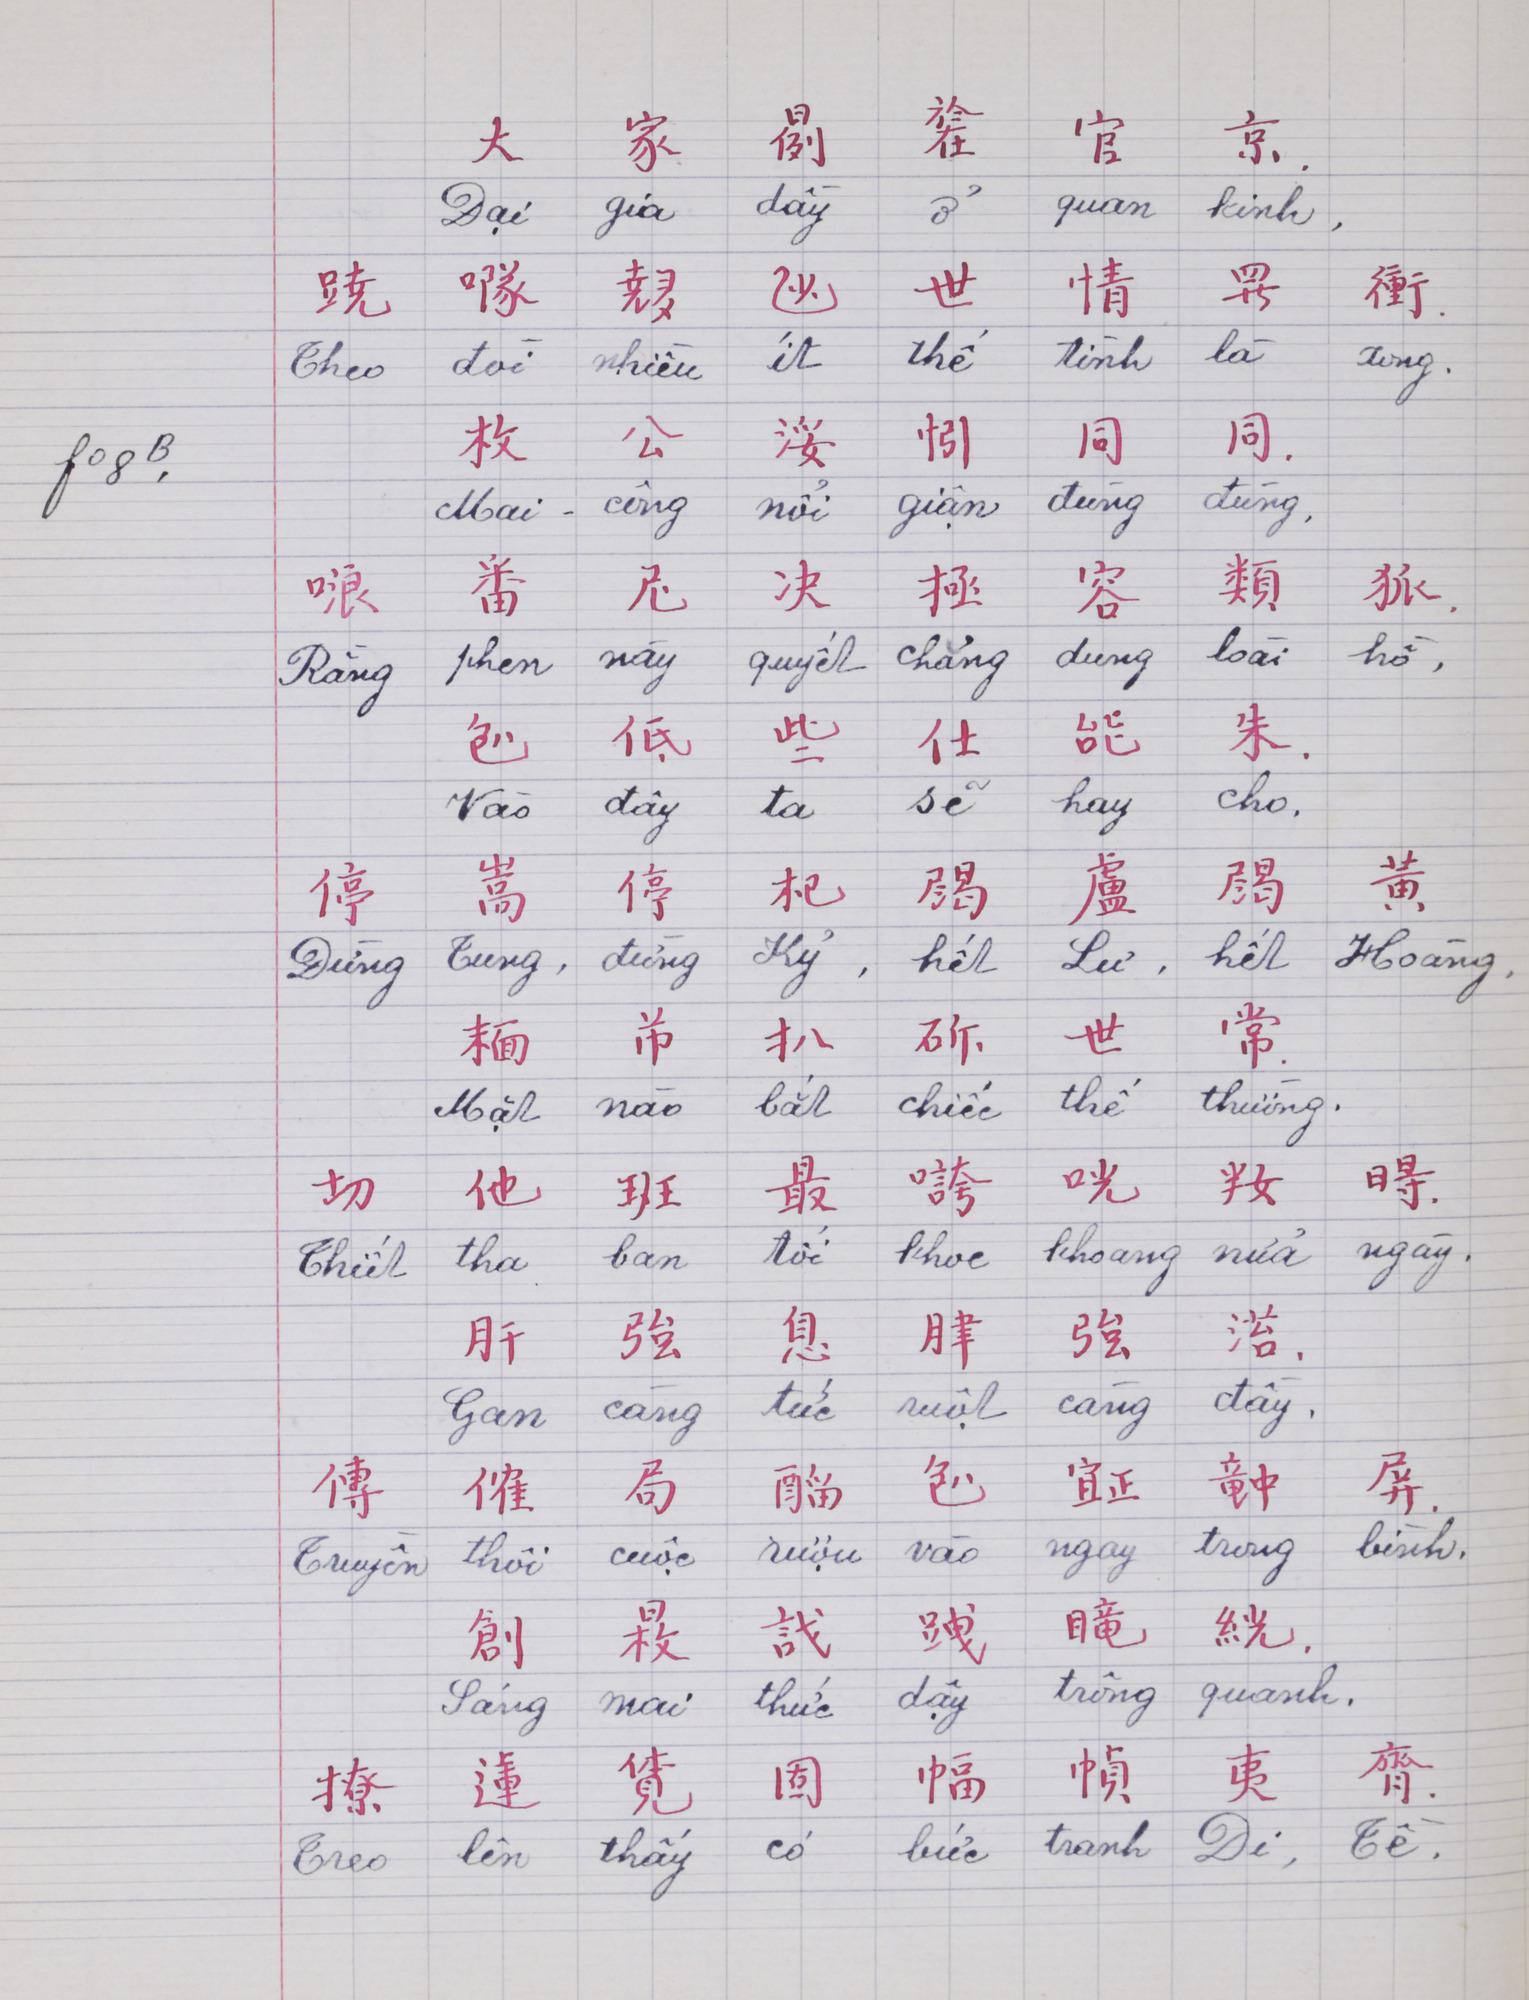 大 家 𠁔 𣄒 官 京.
Đại gia dầy ở quan kinh,
蹺 㘂 𡗉 𠃣 世 情 羅 衝.
Theo đòi nhiều ít thế tình là xong.
f° 8 B.
枚 公 浽 恄 同 同.
Mai - công nổi giận đùng đùng,
哴 番 尼 决 極 容 類 狐.
Rằng phen này quyết chẳng dung loài hồ,
𠓨 低 些 仕 能 朱.
Vào đây ta sẽ hay cho.
停 嵩 停 杞 歇 盧 歇 黃
Đừng Tung, đừng Kỷ, hết Lư, hết Hoàng,
𩈘 芇 扒 斫 世 常.
Mặt nào bắt chiếc thế thường.
切 他 班 最 誇 咣 姅 𣈜.
Thiết tha ban tối khoe khoang nửa ngày.
肝 強 息 𦛌 強 𣹓.
Gan càng tức ruột càng đầy,
傳 催 局 𨢇 𠓨 𣦍 𥪝 屏.
Truyền thôi cuộc rượu vào ngay trong bình.
創 𣈕 𧧝 𧿆 𥊣 絖.
Sáng mai thức dậy trông quanh.
撩 𨖲 𧡊 固 幅 幀 夷 齊.
Treo lên thấy có bức tranh Di, Tề.